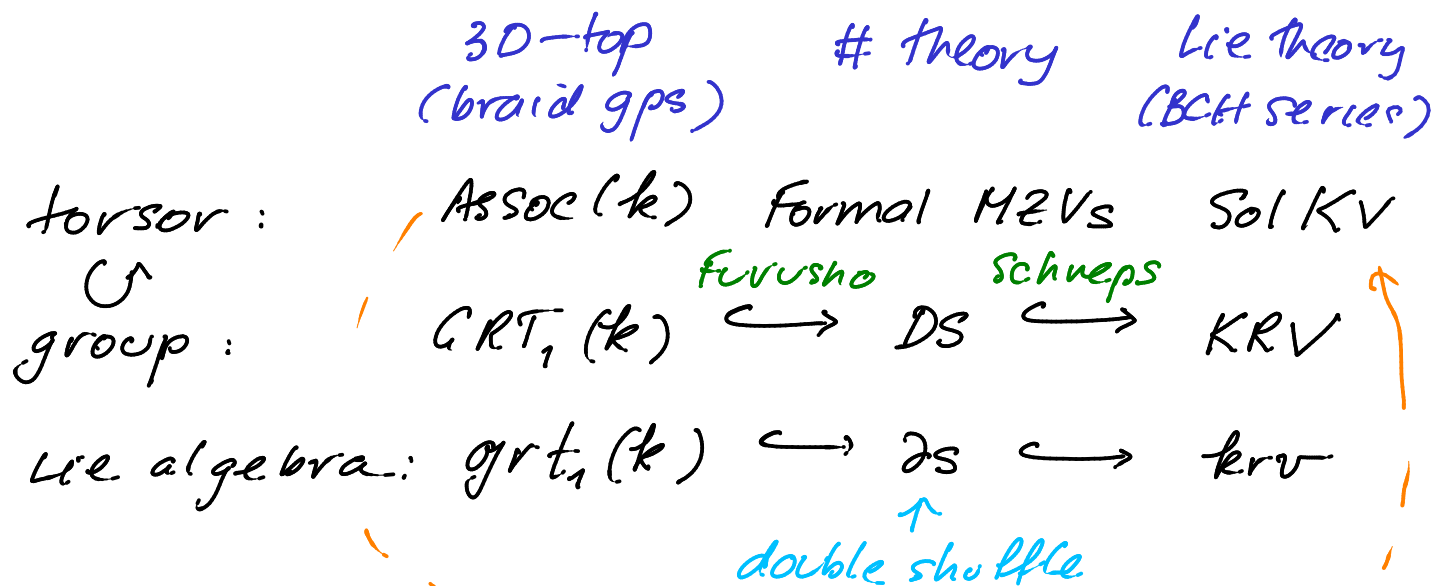 3D-top # theory Lie theory
(braid gps) (BCH series)
torsor : Assoc(k) Formal MZVs Sol KV
Furusho Schneps
group : GRT₁(k) ↪ DS ↪ KRV
Lie algebra: grt₁(k) ↪ ds ↪ krv
double shuffle